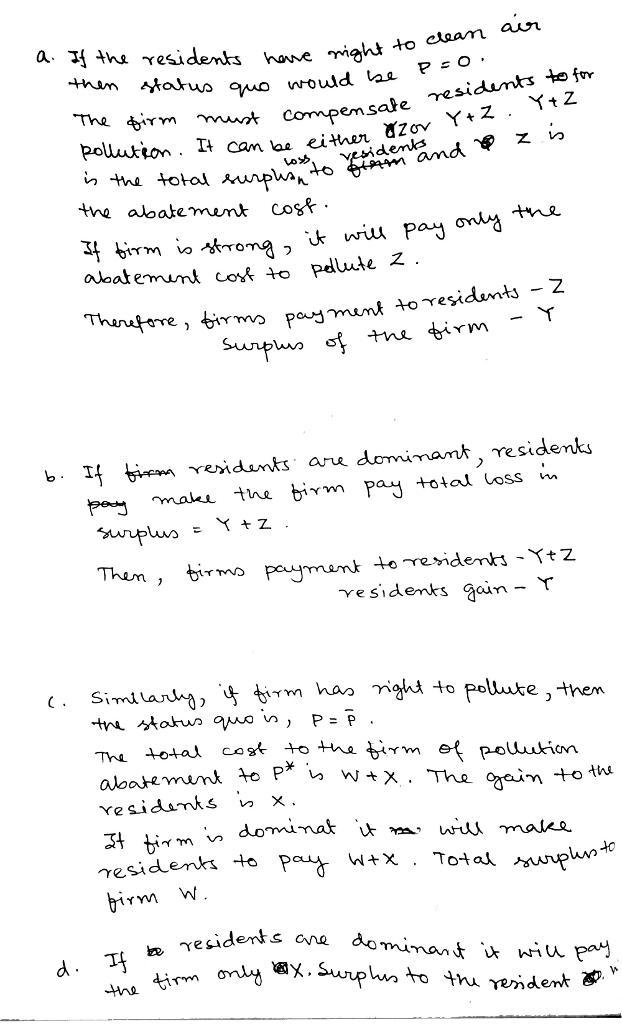 a. If the residents have right to clean air
then status quo would be P = 0.
The firm must compensate residents to for
pollution. It can be either Z or Y+Z. Y+Z
is the total surplus loss to residents and Z is
the abatement cost.
If firm is strong, it will pay only the
abatement cost to pollute Z.
Therefore, firms payment to residents - Z
Surplus of the firm - Y
b. If firm residents are dominant, residents
pay make the firm pay total loss in
surplus = Y + Z.
Then, firms payment to residents - Y+Z
residents gain - Y
c. Similarly, if firm has right to pollute, then
the status quo is, P = P̄.
The total cost to the firm of pollution
abatement to P* is W+X. The gain to the
residents is X.
If firm is dominat it will make
residents to pay W+X. Total surplus to
firm W.
d. If residents are dominant it will pay
the firm only X. Surplus to the resident